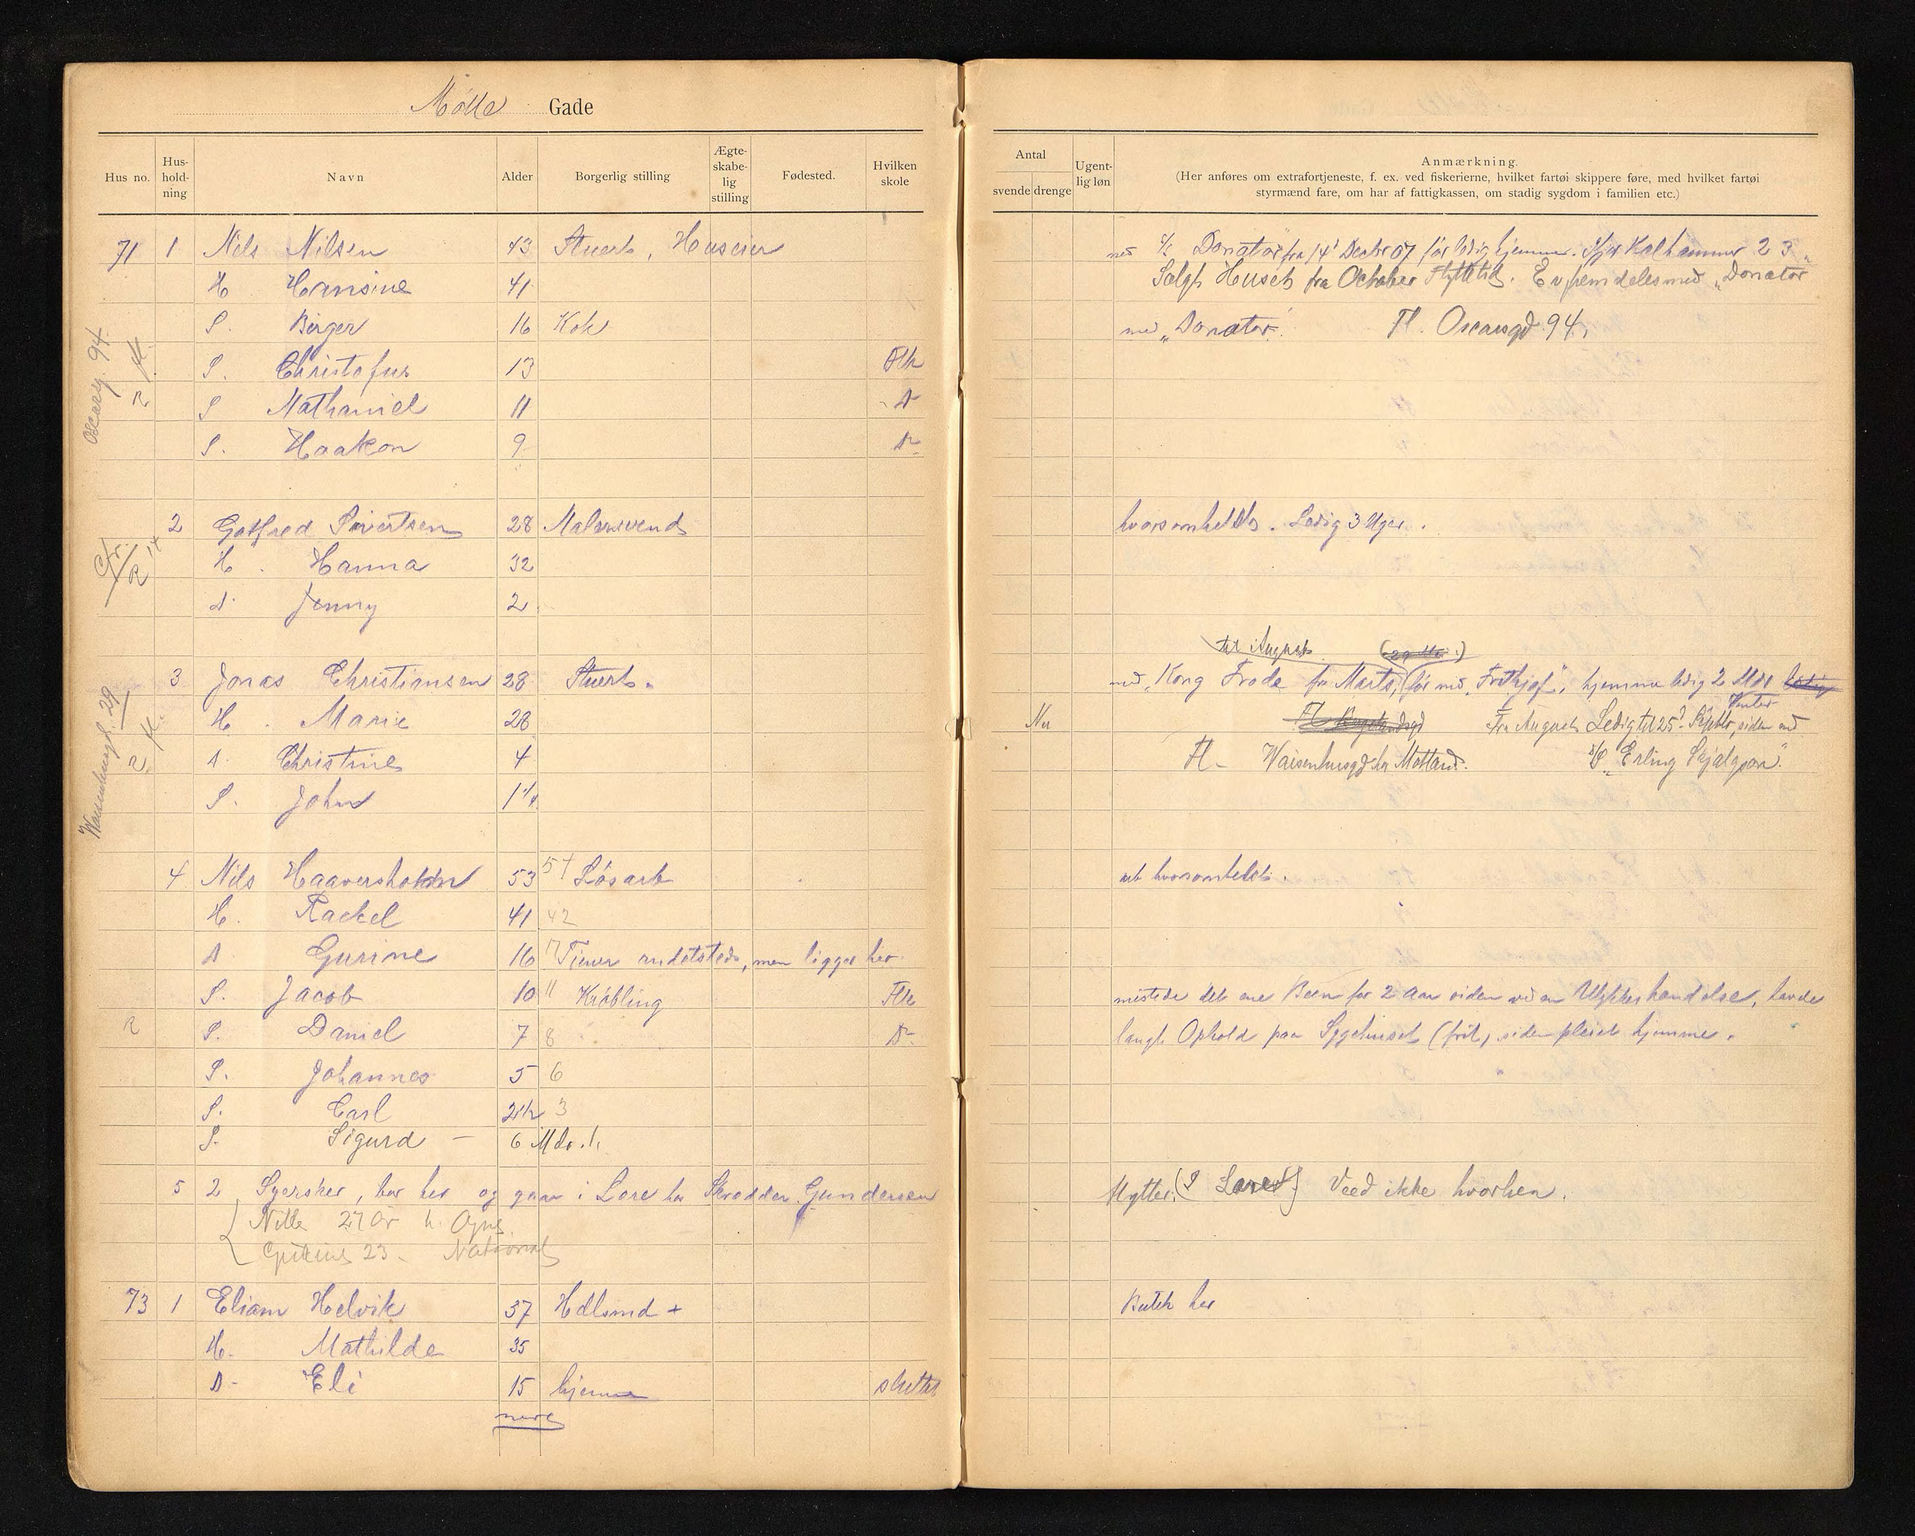 Mølle Gade
Hus no. Hus- hold- ning Navn Alder Borgerlig stilling Ægte- skabe- lig stilling Fødested. Hvilken skole
Antal svende drenge Ugent- lig løn Anmærkning.
(Her anføres om extrafortjeneste, f. ex. ved fiskerierne, hvilket fartøi skippere føre, med hvilket fartøi
styrmænd fare, om har af fattigkassen, om stadig sygdom i familien etc.)
71 1 Nils Nilsen 43 Stuert, Huseier med "Donator" fra 14' Decbr 07 før ledig hjemme. Kalhammer 23
H Hansine 41 Solgt Huset fra October Er fremdeles med "Donator
S. Birger 16 Kok med "Donator". Fl. Oscarsgd 94.
S. Christofus 13 Flk
S Nathaniel 11 D
S. Haakon 9 D
Oscarsg. 94 fl.
R
2 Gotfred Sivertsen 28 Malersvend hvorsomhelst. Ledig 3 Uger.
H. Hanna 32
D. Jenny 2
til August
3 Jonas Christiansen 28 Stuert. med "Kong Frode fra Marts, før med "Frithjof", hjemme ledig 2 Mdr
H. Marie 28 Fl Fra August Ledig til 25' Septbr, siden med
D. Christine 4 Fl- Waisenhusgd hr Motland. D/S "Erling Skjalgson".
S. John 1¼
Waisenhusgd. 29 fl.
R
4 Nils Haaversholm 53 54 Løsarb arb hvorsomhelst.
H. Rackel 41 42
D Gurine 16 17 Tiener andetsteds, men ligger her
S. Jacob 10 11 Krøbling Flk mistede det ene Been for 2 Aar siden ved en Ulykkeshændelse, havde
R S. Daniel 7 8 D langt Ophold paa Sygehuset (frit) siden pleiet hjemme.
S. Johannes 5 6
S. Carl 2½ 3
S. Sigurd - 6 Mdr.
5 2 Syersker, bor her og gaar i Lære hos Skrædder Gundersen flytter. Veed ikke hvorhen.
Nille 27 år
23 - National
73 1 Eliam Helvik 37 Hdlsmd + Butik her
H. Mathilde 35
D- Eli 15 hjemme sluttet